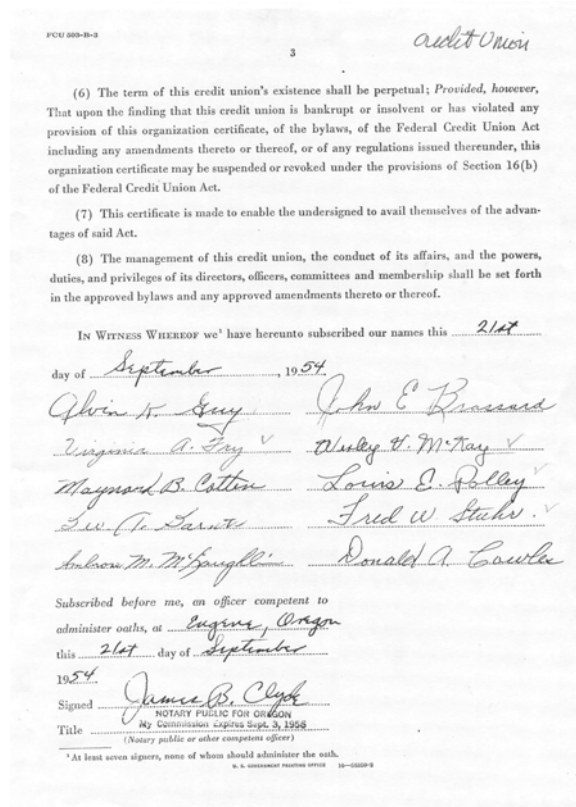 FCU 503-B-3
Credit Union
3
(6) The term of this credit union's existence shall be perpetual; Provided, however,
That upon the finding that this credit union is bankrupt or insolvent or has violated any
provision of this organization certificate, of the bylaws, of the Federal Credit Union Act
including any amendments thereto or thereof, or of any regulations issued thereunder, this
organization certificate may be suspended or revoked under the provisions of Section 16(b)
of the Federal Credit Union Act.
(7) This certificate is made to enable the undersigned to avail themselves of the advan-
tages of said Act.
(8) The management of this credit union, the conduct of its affairs, and the powers,
duties, and privileges of its directors, officers, committees and membership shall be set forth
in the approved bylaws and any approved amendments thereto or thereof.
IN WITNESS WHEREOF we¹ have hereunto subscribed our names this 21st
day of September, 1954.
Alvin K. Guy John E Brassard
Virginia A. Fry Wesley V. McKay
Maynard B. Cotten Louis E. Polley
Fred W. Stuhr.
Ambrose M. McLaughlin Donald A. Cowles
Subscribed before me, an officer competent to
administer oaths, at Eugene, Oregon
this 21st day of September
1954.
Signed James B. Clyde
NOTARY PUBLIC FOR OREGON
Title My Commission Expires Sept. 3, 1955
(Notary public or other competent officer)
¹ At least seven signers, none of whom should administer the oath.
U. S. GOVERNMENT PRINTING OFFICE